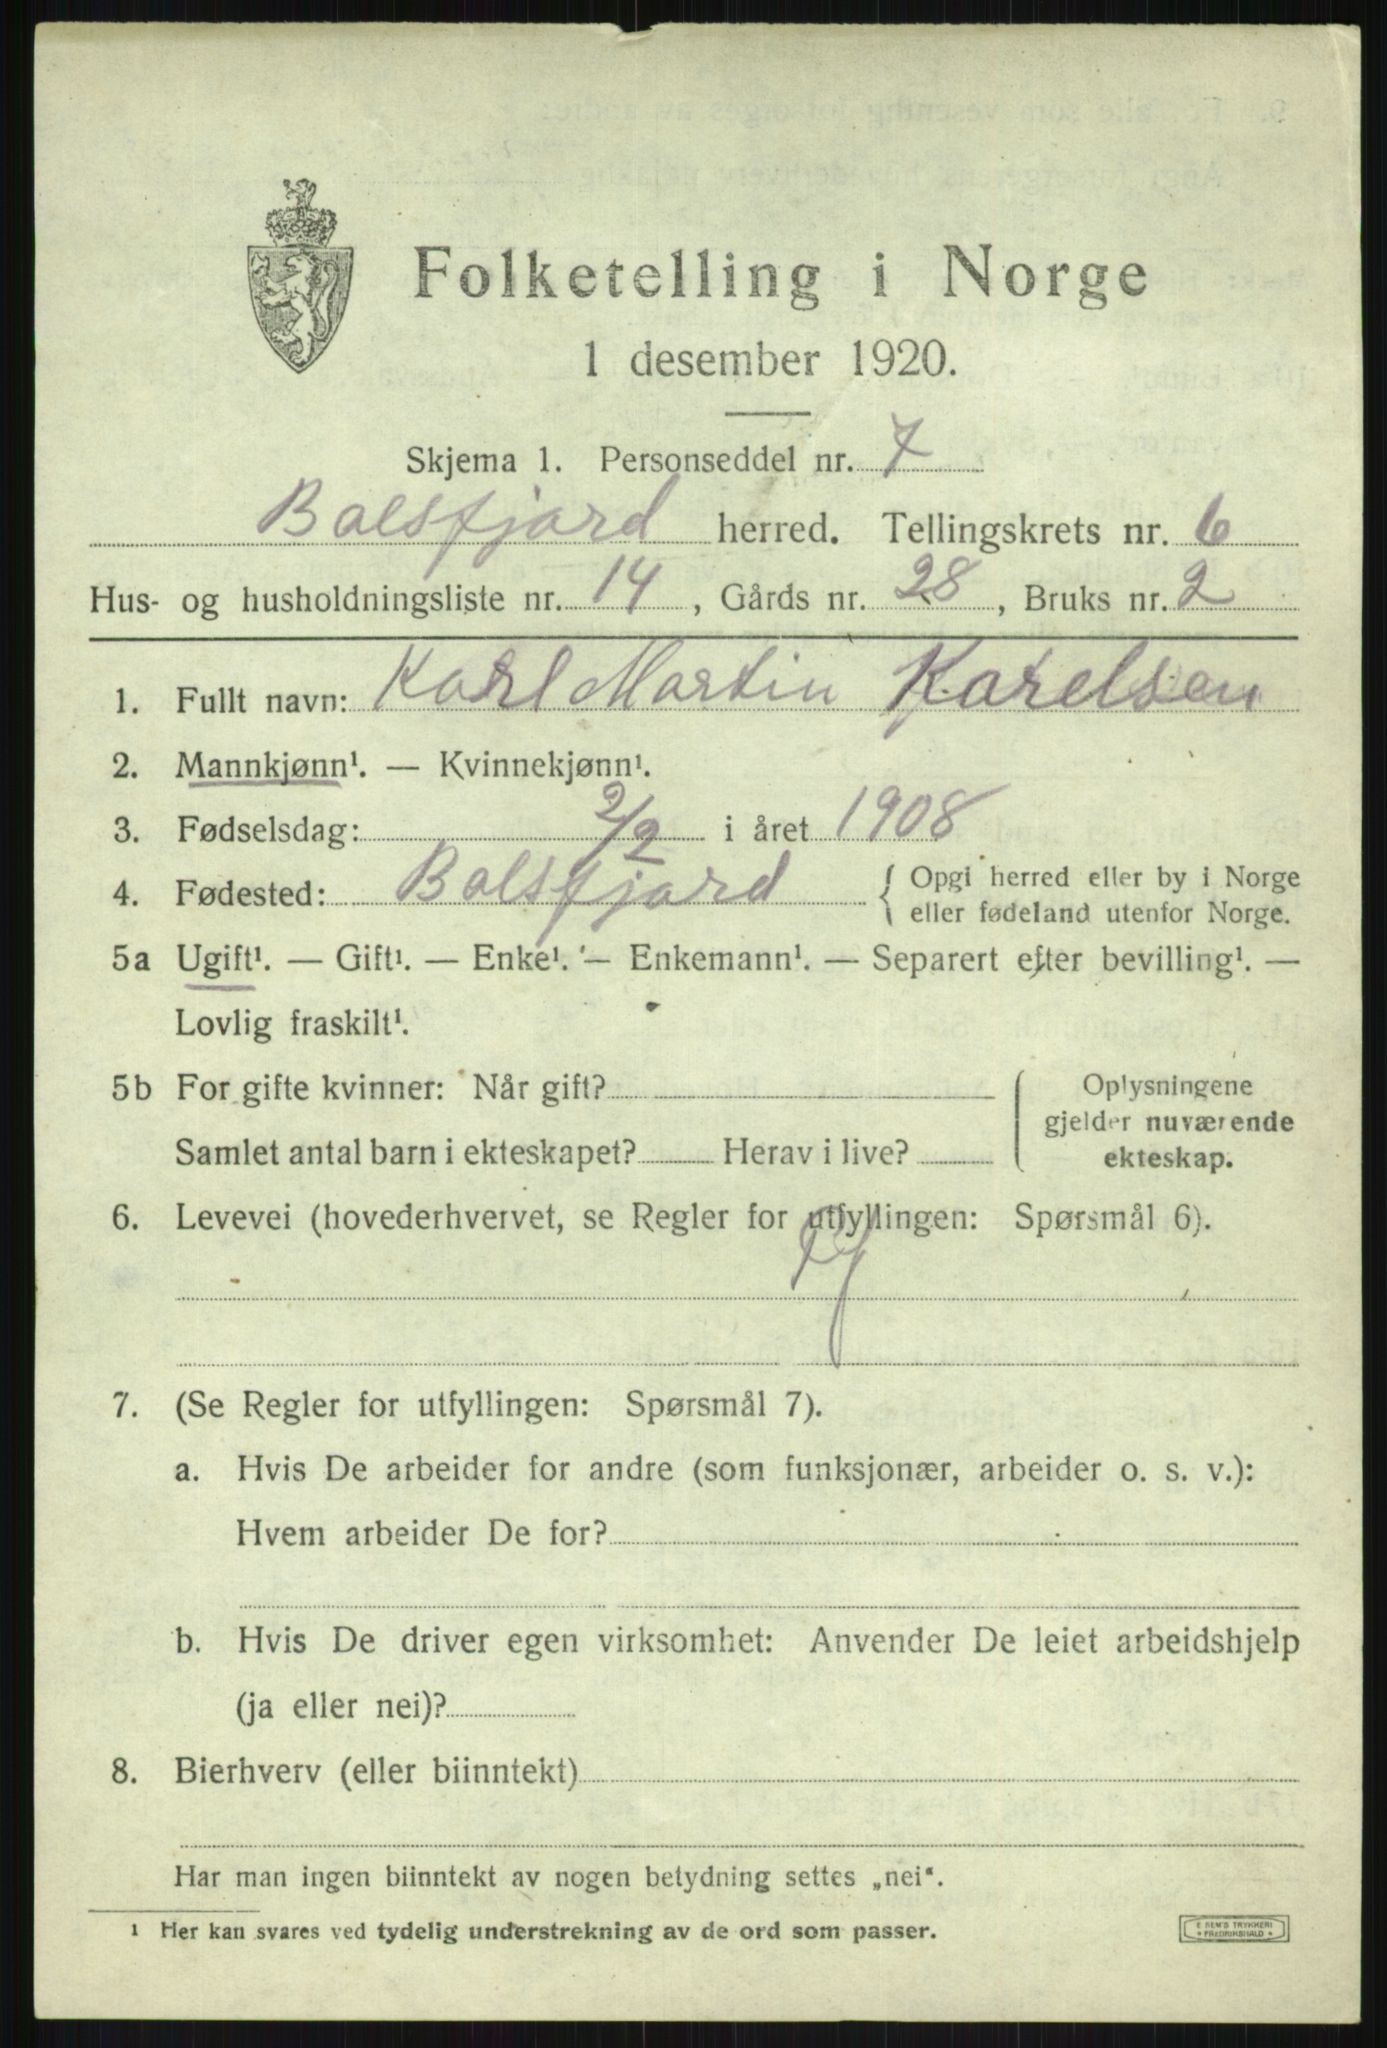 Folketelling i Norge
1 desember 1920.
Skjema 1. Personseddel nr. 7
Balsfjord herred. Tellingskrets nr. 6
Hus- og husholdningsliste nr. 14, Gårds nr. 28, Bruks nr. 2
1. Fullt navn: Karl Martin Karelsen
2. Mannkjønn¹. — Kvinnekjønn¹.
3. Fødselsdag: 2/2 i året 1908
4. Fødested: Balsfjord { Opgi herred eller by i Norge
eller fødeland utenfor Norge.
5a Ugift¹. — Gift¹. — Enke¹. — Enkemann¹. — Separert efter bevilling¹. —
Lovlig fraskilt¹.
5b For gifte kvinner: Når gift? Oplysningene
gjelder nuværende
Samlet antal barn i ekteskapet? Herav i live? ekteskap.
6. Levevei (hovederhvervet, se Regler for utfyllingen: Spørsmål 6).
7. (Se Regler for utfyllingen: Spørsmål 7).
a. Hvis De arbeider for andre (som funksjonær, arbeider o. s. v.):
Hvem arbeider De for?
b. Hvis De driver egen virksomhet: Anvender De leiet arbeidshjelp
(ja eller nei)?
8. Bierhverv (eller biinntekt)
Har man ingen biinntekt av nogen betydning settes „nei“.
¹ Her kan svares ved tydelig understrekning av de ord som passer.
E SEM'S TRYKKERI
FREDRIKSHALD